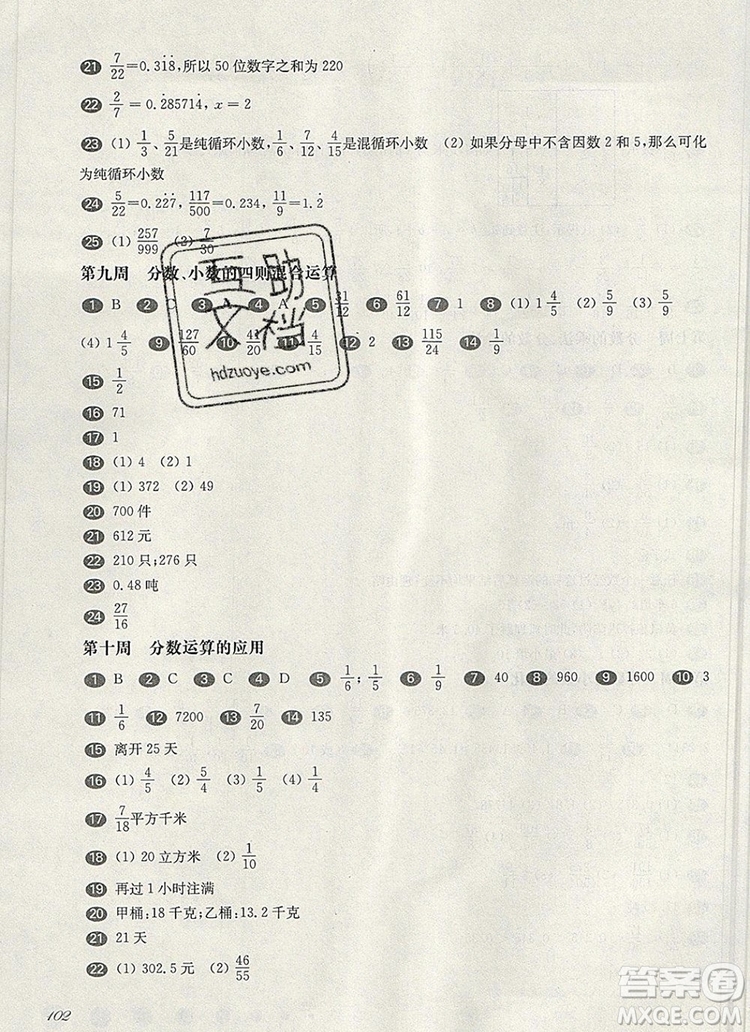 21 7/22=0.3̇18̇,所以 50 位数字之和为 220
22 2/7=0.2̇85714̇,x=2
23 (1) 1/3、5/21是纯循环小数,1/6、7/12、4/15是混循环小数 (2) 如果分母中不含因数 2 和 5,那么可化
为纯循环小数
24 5/22=0.22̇7̇,117/500=0.234,11/9=1.2̇
25 (1) 257/999 (3) 7/30
第九周 分数、小数的四则混合运算
1 B 2 C 4 A 5 31/12 6 61/12 7 1 8 (1) 1 4/5 (2) 5/9 (3) 5/9
(4) 1 4/5 9 127/60 10 41/20 11 4/15 12 2 13 115/24 14 1/9
15 1/2
16 71
17 1
18 (1) 4 (2) 1
19 (1) 372 (2) 49
20 700 件
21 612 元
22 210 只;276 只
23 0.48 吨
24 27/16
第十周 分数运算的应用
1 B 2 C 3 C 4 D 5 1/6;1/5 6 1/9 7 40 8 960 9 1600 10 3
11 1/6 12 7200 13 7/20 14 135
15 离开 25 天
16 (1) 4/5 (2) 5/4 (3) 1/5 (4) 1/4
17 7/18平方千米
18 (1) 20 立方米 (2) 1/10
19 再过 1 小时注满
20 甲桶:18 千克;乙桶:13.2 千克
21 21 天
22 (1) 302.5 元 (2) 46/55
102
互助
文档
hdzuoye.com
答案圈
MXQE.COM